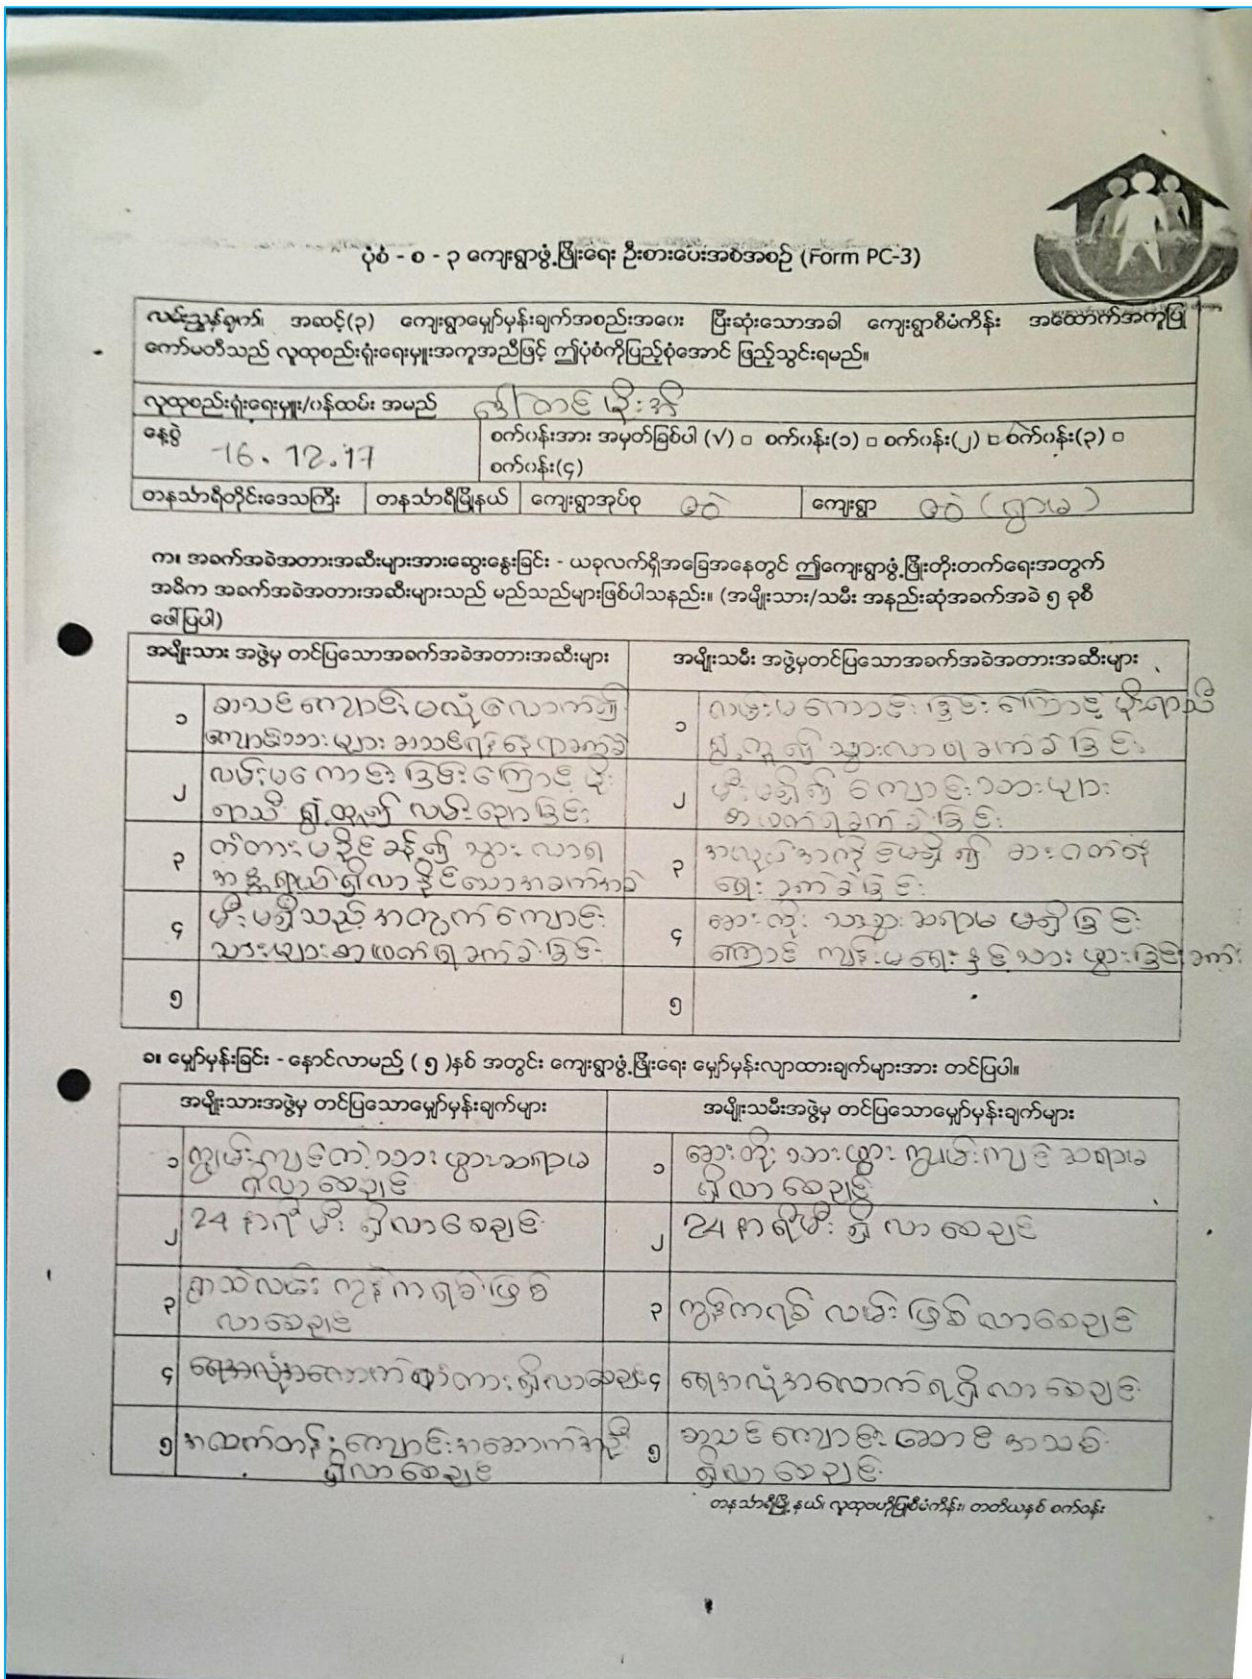 ပုံစံ - စ - ၃ ကျေးရွာဖွံ့ဖြိုးရေး ဦးစားပေးအစီအစဉ် (Form PC-3)
လမ်းညွှန်ချက်၊ အဆင့်(၃) ကျေးရွာမျှော်မှန်းချက်အစည်းအဝေး ပြီးဆုံးသောအခါ ကျေးရွာစီမံကိန်း အထောက်အကူပြု
ကော်မတီသည် လူထုစည်းရုံးရေးမှူးအကူအညီဖြင့် ဤပုံစံကိုပြည့်စုံအောင် ဖြည့်သွင်းရမည်။
လူထုစည်းရုံးရေးမှူး/ဝန်ထမ်း အမည်
နေ့စွဲ 16.12.17
စက်ဝန်းအား အမှတ်ခြစ်ပါ (√) □ စက်ဝန်း(၁) □ စက်ဝန်း(၂) □ စက်ဝန်း(၃) □
စက်ဝန်း(၄)
တနင်္သာရီတိုင်းဒေသကြီး တနင်္သာရီမြို့နယ် ကျေးရွာအုပ်စု ကျေးရွာ (ရွာမ)
က။ အခက်အခဲအတားအဆီးများအားဆွေးနွေးခြင်း - ယခုလက်ရှိအခြေအနေတွင် ဤကျေးရွာဖွံ့ဖြိုးတိုးတက်ရေးအတွက်
အဓိက အခက်အခဲအတားအဆီးများသည် မည်သည်များဖြစ်ပါသနည်း။ (အမျိုးသား/သမီး အနည်းဆုံးအခက်အခဲ ၅ ခုစီ
ဖေါ်ပြပါ)
အမျိုးသား အဖွဲ့မှ တင်ပြသောအခက်အခဲအတားအဆီးများ အမျိုးသမီး အဖွဲ့မှတင်ပြသောအခက်အခဲအတားအဆီးများ
၁ စာသင်ကျောင်းမလုံလောက်၍
ကျောင်းသားများ စာသင်ရန်နေရာခက်ခဲ
၁ လမ်းမကောင်းခြင်းကြောင့် မိုးရာသီ
သွားလာရခက်ခဲခြင်း
၂ လမ်းမကောင်းခြင်းကြောင့် မိုး
ရာသီ ရွှံ့ထူ၍ လမ်းချော်ခြင်း
၂ မီးမရှိ၍ ကျောင်းသားများ
စာဖတ်ရခက်ခဲခြင်း
၃ တံတားမခိုင်ခန့်၍ သွားလာရ
အန္တရာယ်ရှိလာနိုင်သောအခက်အခဲ
၃ အလုပ်အကိုင်မရှိ၍ စားဝတ်နေ
ရေးခက်ခဲခြင်း
၄ မီးမရှိသည့်အတွက်ကျောင်း
သားများစာဖတ်ရခက်ခဲခြင်း
၄ ဆေးကု သားဖွားဆရာမ မရှိခြင်း
ကြောင့် ကျန်းမာရေးနှင့်သားဖွားခြင်းခက်
၅
၅
ခ။ မျှော်မှန်းခြင်း - နောင်လာမည့် ( ၅ )နှစ် အတွင်း ကျေးရွာဖွံ့ဖြိုးရေး မျှော်မှန်းလျာထားချက်များအား တင်ပြပါ။
အမျိုးသားအဖွဲ့မှ တင်ပြသောမျှော်မှန်းချက်များ အမျိုးသမီးအဖွဲ့မှ တင်ပြသောမျှော်မှန်းချက်များ
၁ ကျွမ်းကျင်တဲ့သားဖွားဆရာမ
ရှိလာစေချင်
၁ ဆေးကု သားဖွား ကျွမ်းကျင်ဆရာမ
ရှိလာစေချင်
၂ 24 နာရီ မီး ရှိလာစေချင်
၂ 24 နာရီမီး ရှိလာစေချင်
၃ ရွာထဲလမ်း ကွန်ကရစ်ဖြစ်
လာစေချင်
၃ ကွန်ကရစ် လမ်းဖြစ်လာစေချင်
၄ ရေအလုံအလောက် ရှိလာစေချင်
၄ ရေအလုံအလောက်ရရှိလာစေချင်
၅ အထက်တန်းကျောင်းအဆောက်အဦ
ရှိလာစေချင်
၅ စာသင်ကျောင်းဆောင်အသစ်
ရှိလာစေချင်
တနင်္သာရီမြို့နယ်၊ လူထုဗဟိုပြုစီမံကိန်း၊ တတိယနှစ် စက်ဝန်း